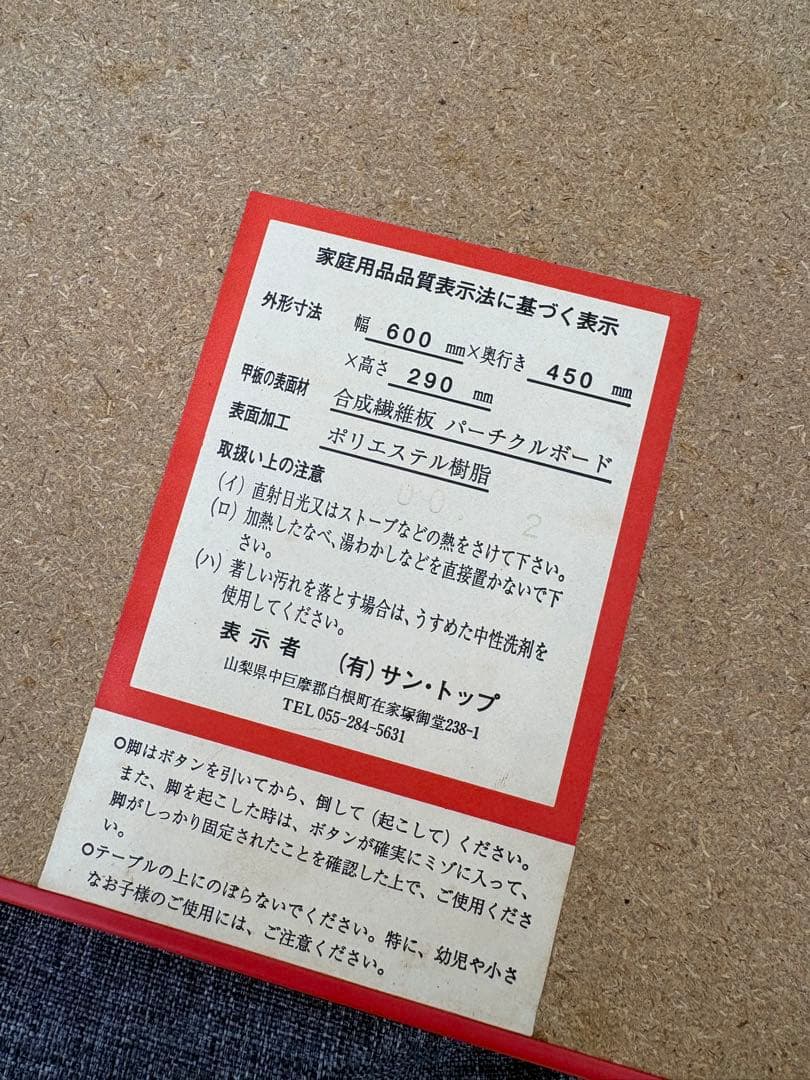 家庭用品品質表示法に基づく表示
外形寸法 幅 600 mm×奥行き 450 mm
×高さ 290 mm
甲板の表面材 合成繊維板 パーチクルボード
表面加工 ポリエステル樹脂
取扱い上の注意
(イ) 直射日光又はストーブなどの熱をさけて下さい。
(ロ) 加熱したなべ、湯わかしなどを直接置かないで下
さい。
(ハ) 著しい汚れを落とす場合は、うすめた中性洗剤を
使用してください。
表示者 (有)サン・トップ
山梨県中巨摩郡白根町在家塚御堂238-1
TEL 055-284-5631
○脚はボタンを引いてから、倒して(起こして)ください。
また、脚を起こした時は、ボタンが確実にミゾに入って、
脚がしっかり固定されたことを確認した上で、ご使用くださ
い。
○テーブルの上にのぼらないでください。特に、幼児や小さ
なお子様のご使用には、ご注意ください。